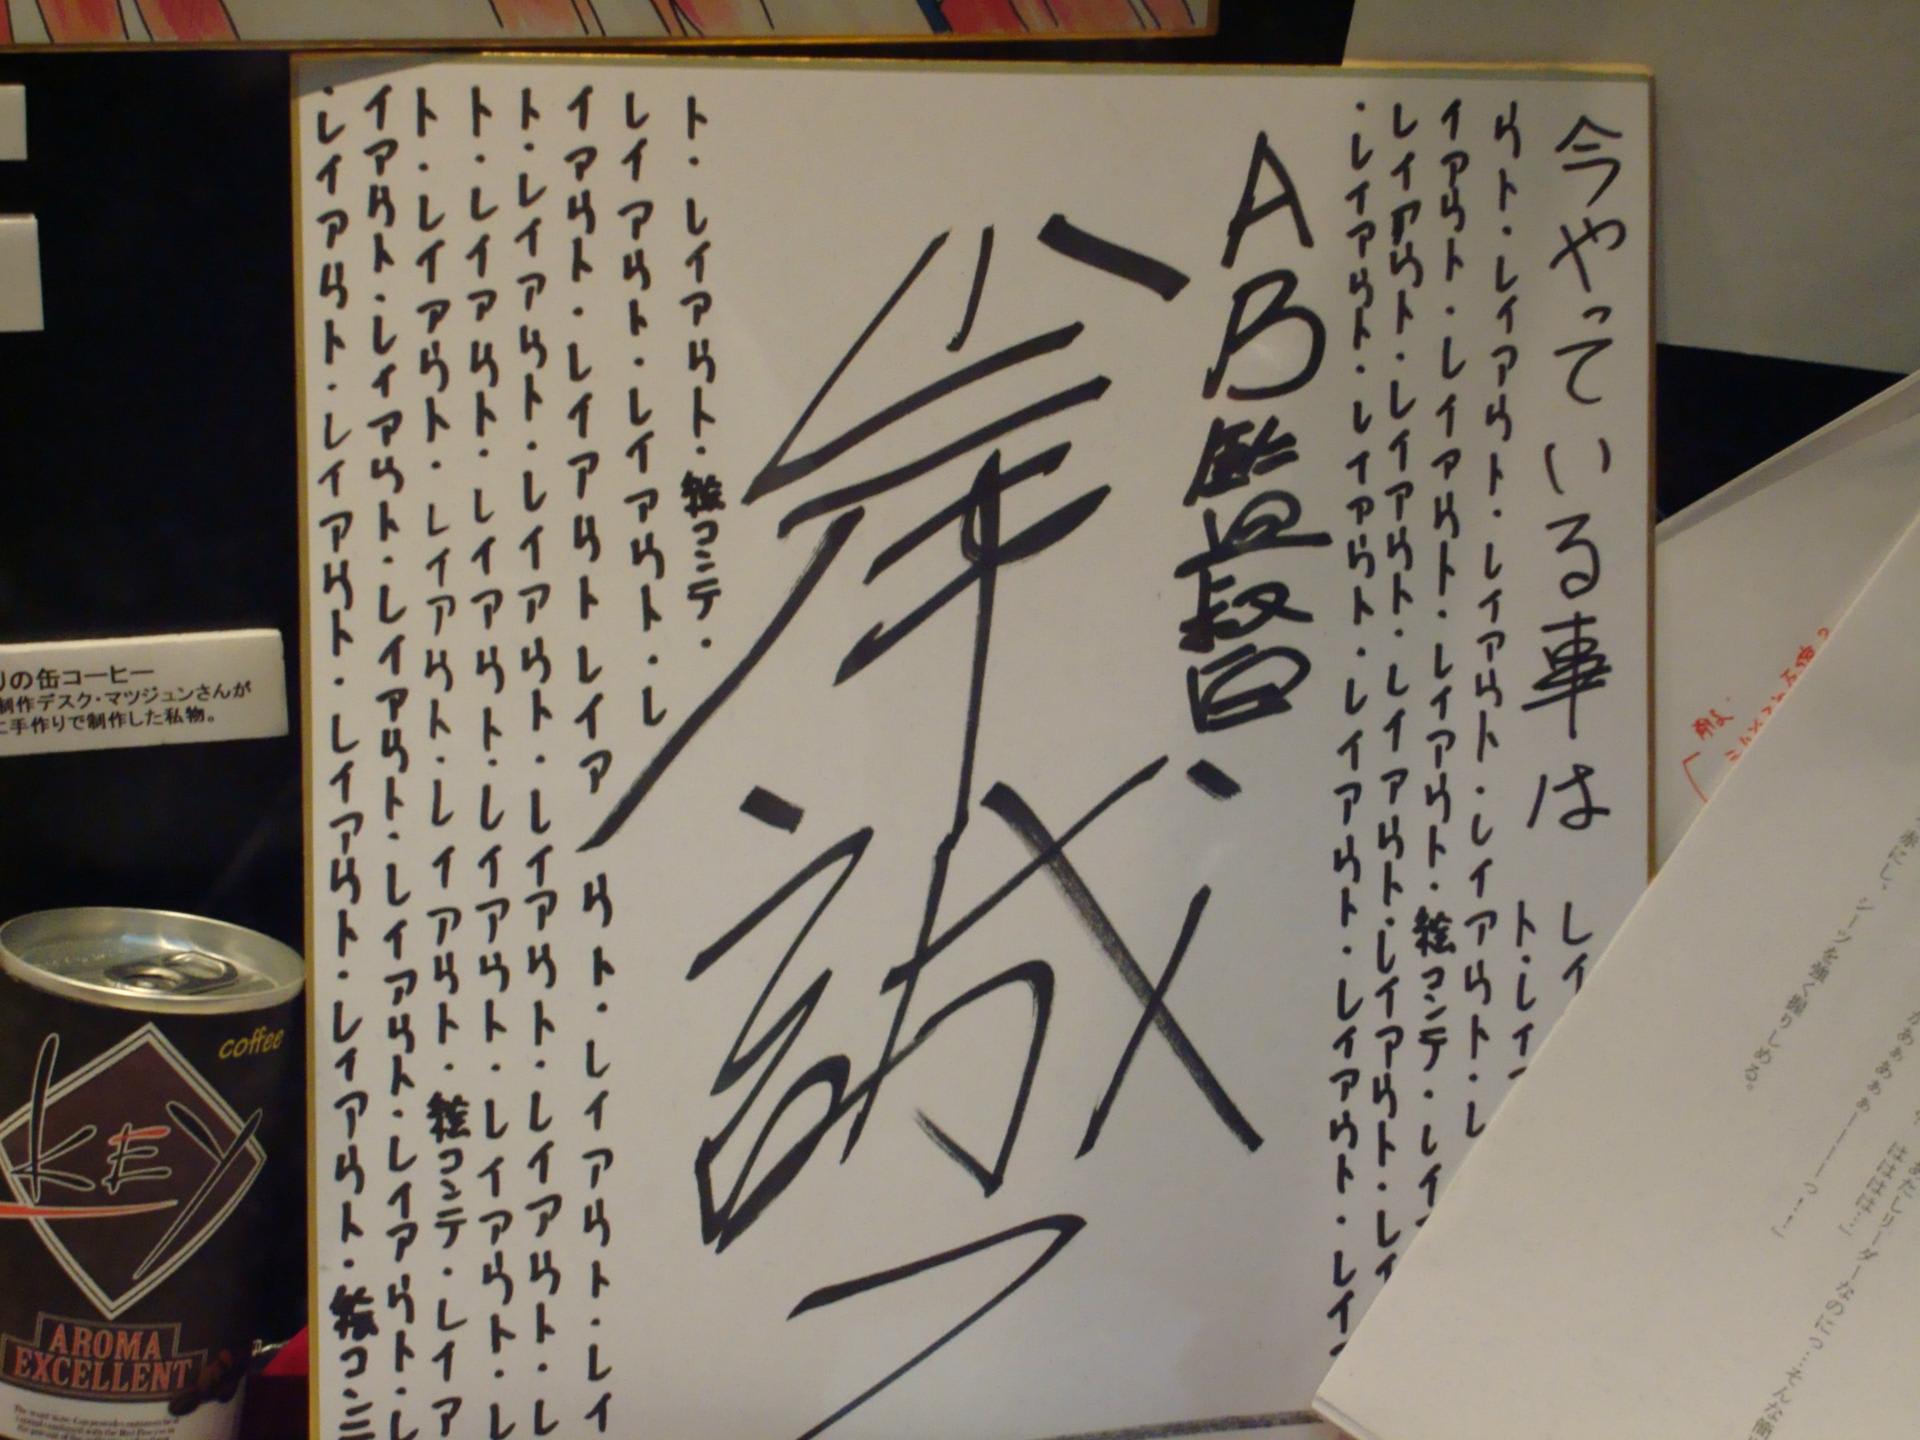 今やっている事は レイ
ト・レイ
ウト・レイアウト・レイアウト・レイアウト・レ
イアウト・レイアウト・レイアウト・絵コンテ・レイ
レイアウト・レイアウト・レイアウト・レイアウト・レイ
・レイアウト・レイアウト・レイアウト・レイアウト・レイ
AB監督
岸誠二
ト・レイアウト・絵コンテ・
レイアウト・レイアウト・レ
イアウト・レイアウトレイア ウト・レイアウト・レイ
ト・レイアウト・レイアウト・レイアウト・レイアウト・レ
ト・レイアウト・レイアウト・レイアウト・レイアウト・レ
ト・レイアウト・レイアウト・レイアウト・絵コンテ・レイア
イアウト・レイアウト・レイアウト・レイアウト・レイアウト・レ
・レイアウト・レイアウト・レイアウト・レイアウト・絵コン
の缶コーヒー
制作デスク・マツジュンさんが
に手作りで制作した私物。
coffee
KEY
AROMA
EXCELLENT
シーツを強く握りしめる。